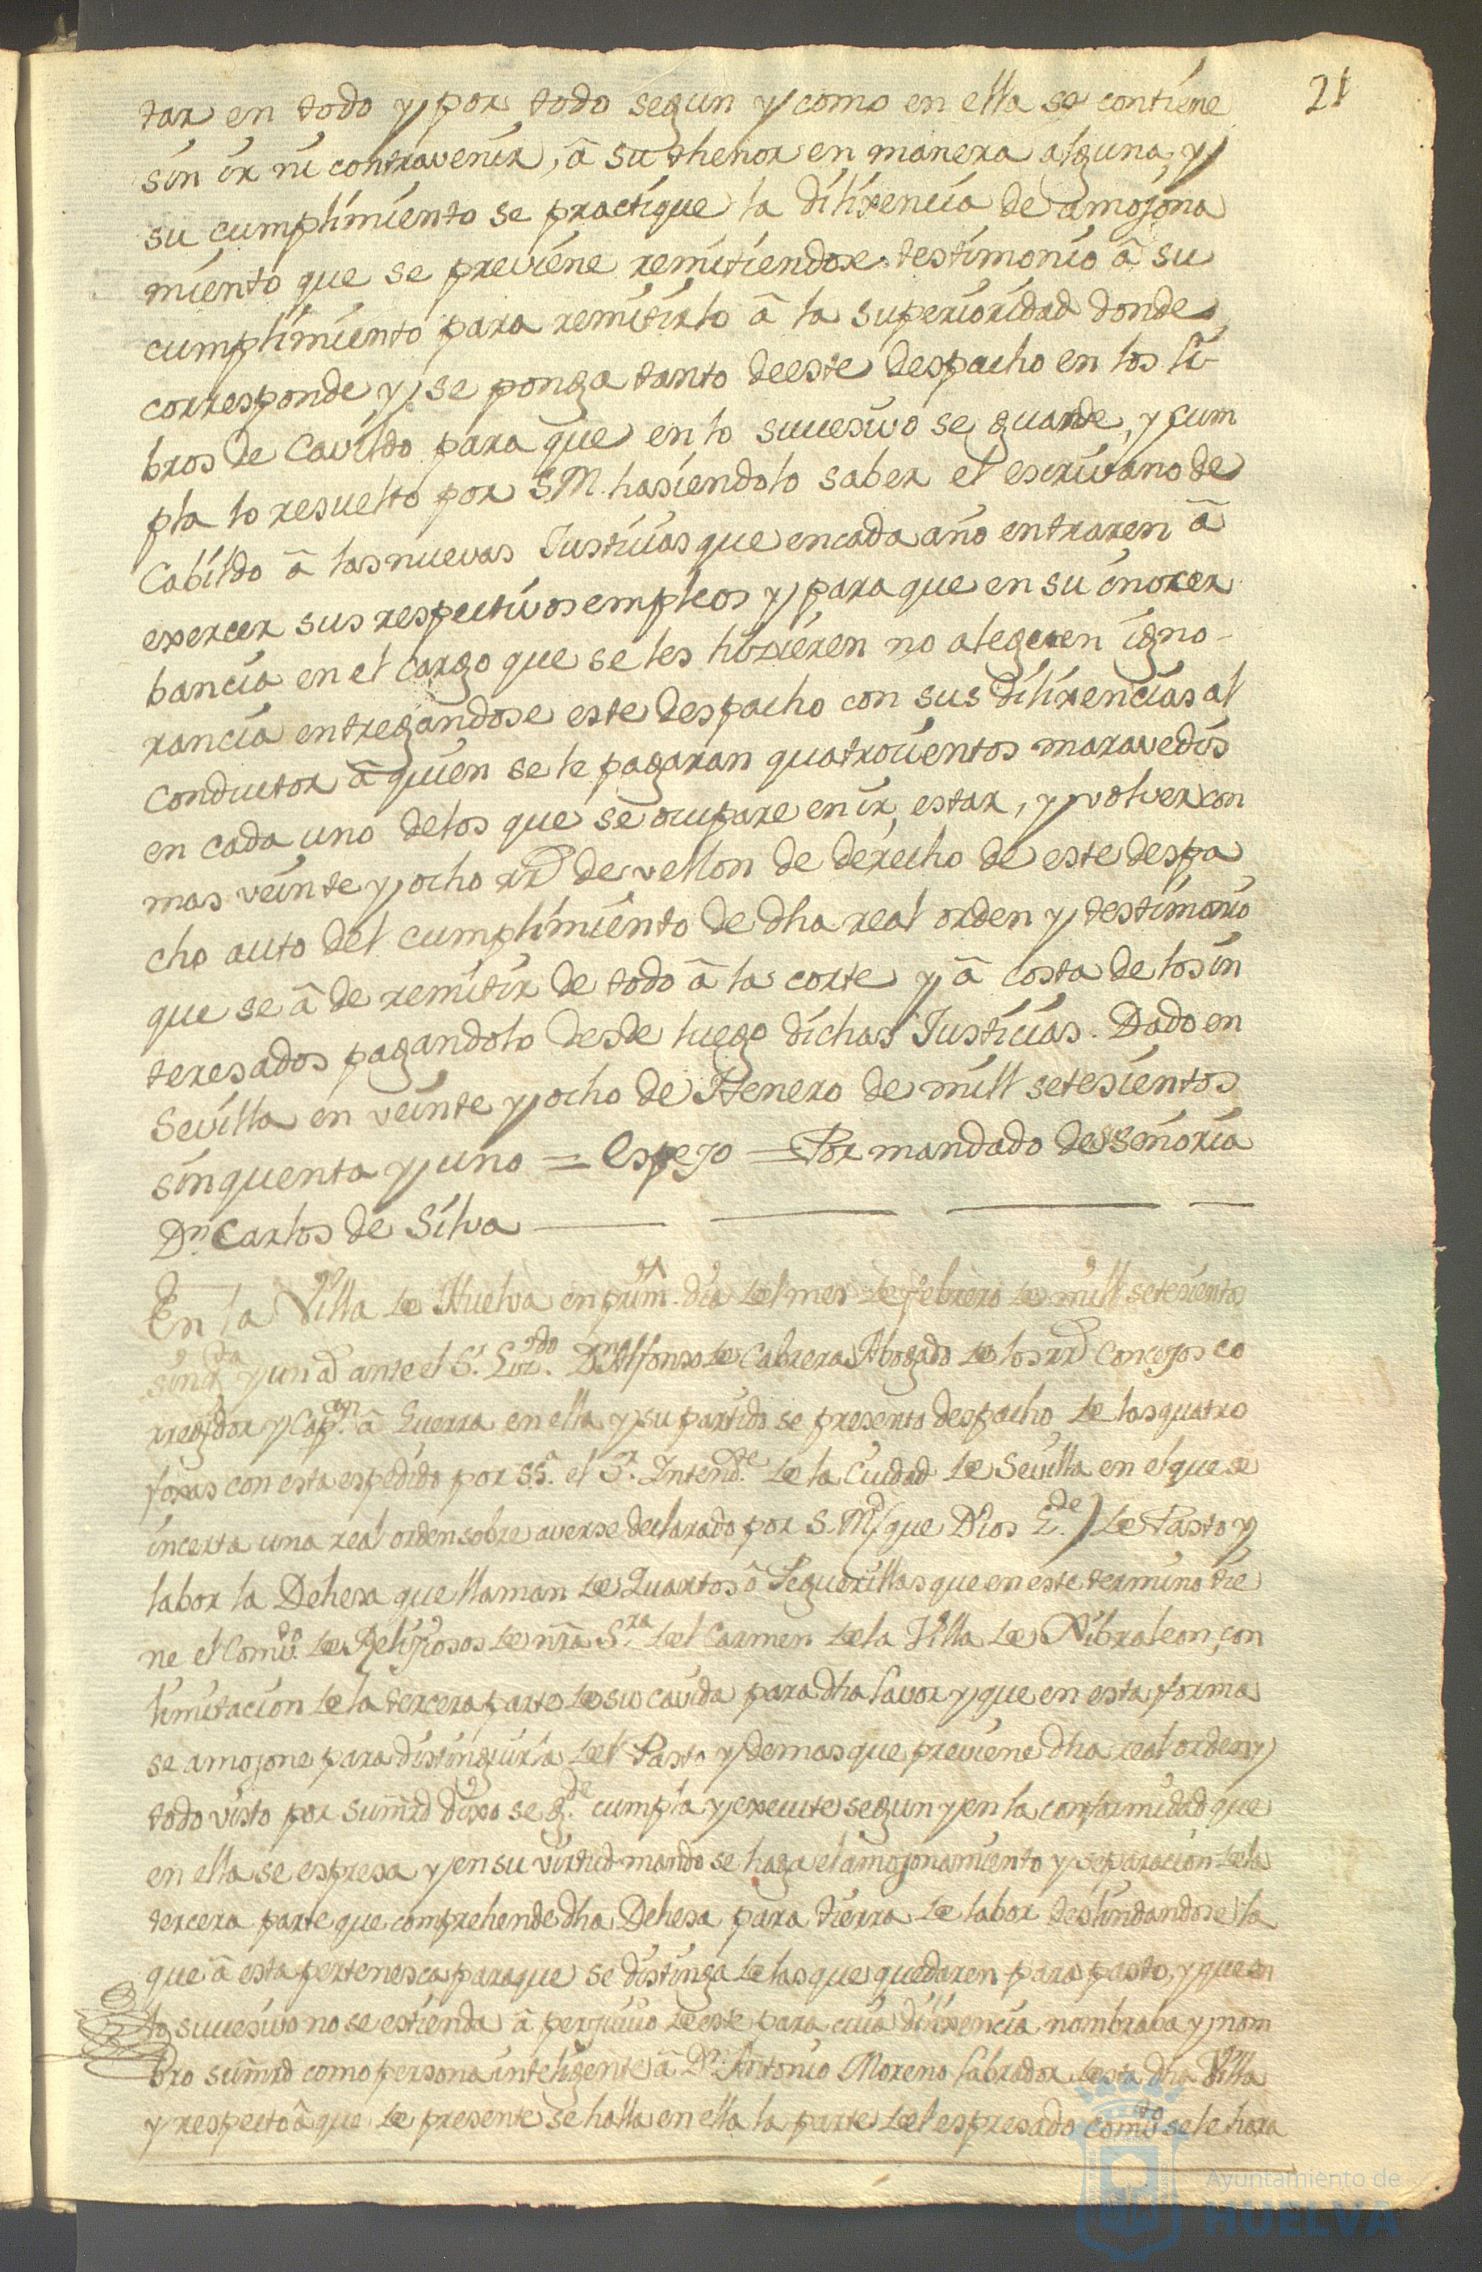 21
tar en todo y por todo segun y como en ella se contiene
sin ir ni contravenir, â su thenor en manera alguna, y
su cumplimiento se practique la dilixencia de amojona
miento que se previene remitiendose testimonio â su
cumplimiento para remitirlo â la superioridad donde
corresponde y se ponga tanto deeste despacho en los li-
bros de Cavildo para que en lo sucesivo se guarde, y cum
pla lo resuelto por S M. hasiendolo saber el escrivano de
Cabildo â las nuevas Justicias que encada año entraren â
exercer sus respectivos empleos y para que en su ynorer
bancia en el cargo que se les hizieren no aleguen igno-
rancia entregandose este despacho con sus dilixencias al
conductor â quien se le pagaran quatrocientos maravedis
en cada uno delos que se ocupare en ir, estar, y volver con
mas veinte y ocho rrs de vellon de derecho de este despa
cho auto del cumplimiento de dha real orden y testimonio
que se â de remitir de todo â la corte y â costa de los in
teresados pagandolo desde luego dichas Justicias. Dado en
Sevilla en veinte y ocho de Henero de mill setesientos
sinquenta y uno = Espejo = Por mandado de su señoria
Dn. Carlos de Silva
En la Villa de Huelva en prim.º dia del mes de febrero de mill setecientos
sinqta y un aº ante el Sr. Lizdo. Dn Alfonso de Cabrera Abogado de los rrs Concejos co
rregidor y Capn. â Guerra en ella y su partido se presento despacho de las quatro
foxas con esta espedido por SSª. el Sr. Intendte. de la Ciudad de Sevilla en el que se
incerta una real orden sobre averse declarado por S. Md (que Dios Gde) de Pasto y
labor la Dehesa que llaman de Quartos ô Segurillas que en este termino tie
ne el Comvto. de Relijiosos de nra Sra del Carmen dela Villa de Xibraleon, con
limitacion de la tercera parte de su cavida para dha lavor y que en esta forma
se amojone para distinguirla del Pasto y demas que previene dha real orden y
todo visto por su mrd dixo se gde. cumpla y execute segun y en la conformidad que
en ella se espresa y en su virtud mando se haga el amojonamiento y separacion dela
tercera parte que comprehende dha Dehesa para tierra de labor deslindandose la
que â esta pertenesca para que se distinga de las que quedaren para pasto, y que en
lo sucesivo no se estienda â perjuicio de este para cuia dilixencia nombraba y nom
bro su mrd como persona inteligente â Dn. Antonio Moreno labrador desta dha Villa
y respecto â que de presente se halla en ella la parte del espresado comvto se le hara
Ayuntamiento de
HUELVA